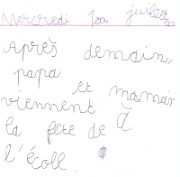 Mercredi 1er juillet
Après demain,
papa et maman
viennent à
la fête de
l'écoll.